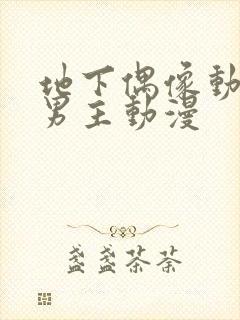 地下偶像動
男主動漫
盏盏茶荼